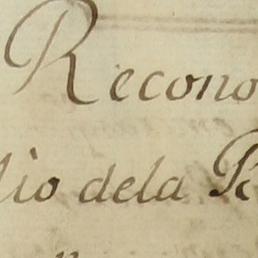 Recono
lio dela R